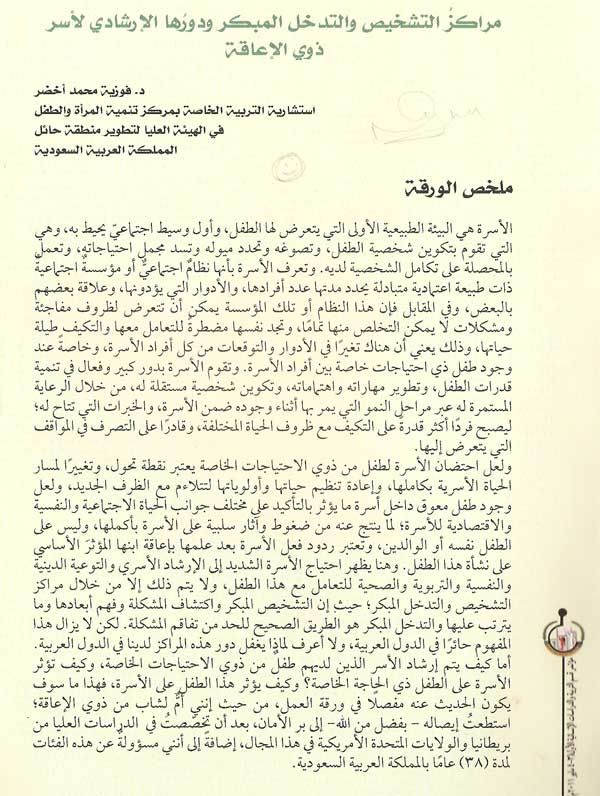 مراكزُ التشخيص والتدخل المبكر ودورُها الإرشادي لأسر
ذوي الإعاقة
د. فوزية محمد أخضر
استشارية التربية الخاصة بمركز تنمية المرأة والطفل
في الهيئة العليا لتطوير منطقة حائل
المملكة العربية السعودية
ملخص الورقة
الأسرة هي البيئة الطبيعية الأولى التي يتعرض لها الطفل، وأول وسيط اجتماعيّ يحيط به، وهي
التي تقوم بتكوين شخصية الطفل، وتصوغه وتحدد ميوله وتسد مجمل احتياجاته، وتعمل
بالمحصلة على تكامل الشخصية لديه. وتعرف الأسرة بأنها نظامٌ اجتماعيٌّ أو مؤسسةٌ اجتماعيةٌ
ذات طبيعة اعتمادية متبادلة يحدد مدتها عدد أفرادها، والأدوار التي يؤدونها، وعلاقة بعضهم
بالبعض، وفي المقابل فإن هذا النظام أو تلك المؤسسة يمكن أن تتعرض لظروف مفاجئة
ومشكلات لا يمكن التخلص منها تمامًا، وتجد نفسها مضطرةً للتعامل معها والتكيف طيلة
حياتها، وذلك يعني أن هناك تغيرًا في الأدوار والتوقعات من كل أفراد الأسرة، وخاصةً عند
وجود طفل ذي احتياجات خاصة بين أفراد الأسرة. وتقوم الأسرة بدور كبير وفعال في تنمية
قدرات الطفل، وتطوير مهاراته واهتماماته، وتكوين شخصية مستقلة له، من خلال الرعاية
المستمرة له عبر مراحل النمو التي يمر بها أثناء وجوده ضمن الأسرة، والخبرات التي تتاح له؛
ليصبح فردًا أكثر قدرةً على التكيف مع ظروف الحياة المختلفة، وقادرًا على التصرف في المواقف
التي يتعرض إليها.
ولعل احتضان الأسرة لطفل من ذوي الاحتياجات الخاصة يعتبر نقطة تحول، وتغييرًا لمسار
الحياة الأسرية بكاملها، وإعادة تنظيم حياتها وأولوياتها لتتلاءم مع الظرف الجديد، ولعل
وجود طفل معوق داخل أسرة ما يؤثر بالتأكيد على مختلف جوانب الحياة الاجتماعية والنفسية
والاقتصادية للأسرة؛ لما ينتج عنه من ضغوط وآثار سلبية على الأسرة بأكملها، وليس على
الطفل نفسه أو الوالدين، وتعتبر ردود فعل الأسرة بعد علمها بإعاقة ابنها المؤثرَ الأساسي
على نشأة هذا الطفل. وهنا يظهر احتياج الأسرة الشديد إلى الإرشاد الأسري والتوعية الدينية
والنفسية والتربوية والصحية للتعامل مع هذا الطفل، ولا يتم ذلك إلا من خلال مراكز
التشخيص والتدخل المبكر؛ حيث إن التشخيص المبكر واكتشاف المشكلة وفهم أبعادها وما
يترتب عليها والتدخل المبكر هو الطريق الصحيح للحد من تفاقم المشكلة. لكن لا يزال هذا
المفهوم حائرًا في الدول العربية، ولا أعرف لماذا يغفل دور هذه المراكز لدينا في الدول العربية.
أما كيف يتم إرشاد الأسر الذين لديهم طفلٌ من ذوي الاحتياجات الخاصة، وكيف تؤثر
الأسرة على الطفل ذي الحاجة الخاصة؟ وكيف يؤثر هذا الطفل على الأسرة، فهذا ما سوف
يكون الحديث عنه مفصلًا في ورقة العمل، من حيث إنني أمٌّ لشاب من ذوي الإعاقة؛
استطعتُ إيصاله - بفضل من الله- إلى بر الأمان، بعد أن تخصّصتُ في الدراسات العليا من
بريطانيا والولايات المتحدة الأمريكية في هذا المجال، إضافةً إلى أنني مسؤولةٌ عن هذه الفئات
لمدة (٣٨) عامًا بالمملكة العربية السعودية.